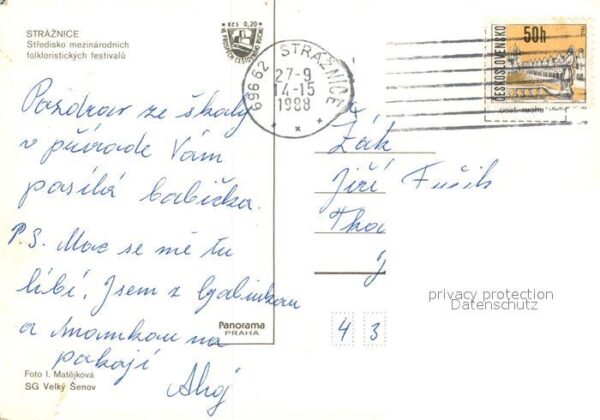 STRÁŽNICE
Středisko mezinárodních
folkloristických festivalů
Kčs 0,20
VE PROSPĚCH CESTOVNÍHO RUCHU
696 62 STRÁŽNICE
27-9
14-15
1988
ČESKOSLOVENSKO
50h
Pozdrav ze školy
v přírodě Vám
posílá babička.
P.S. Moc se mě tu
líbí. Jsem z
a na
pokoji
Ahoj
Žák
Jiří Fučík
privacy protection
Datenschutz
4 3
Panorama
PRAHA
Foto I. Matějková
SG Velký Šenov